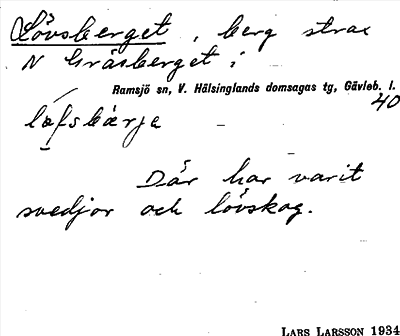 Lövsberget, berg strax
N Gräsberget i
Ramsjö sn, V. Hälsinglands domsagas tg, Gävleb. l.
40
Där har varit
svedjor och lövskog.
LARS LARSSON 1934